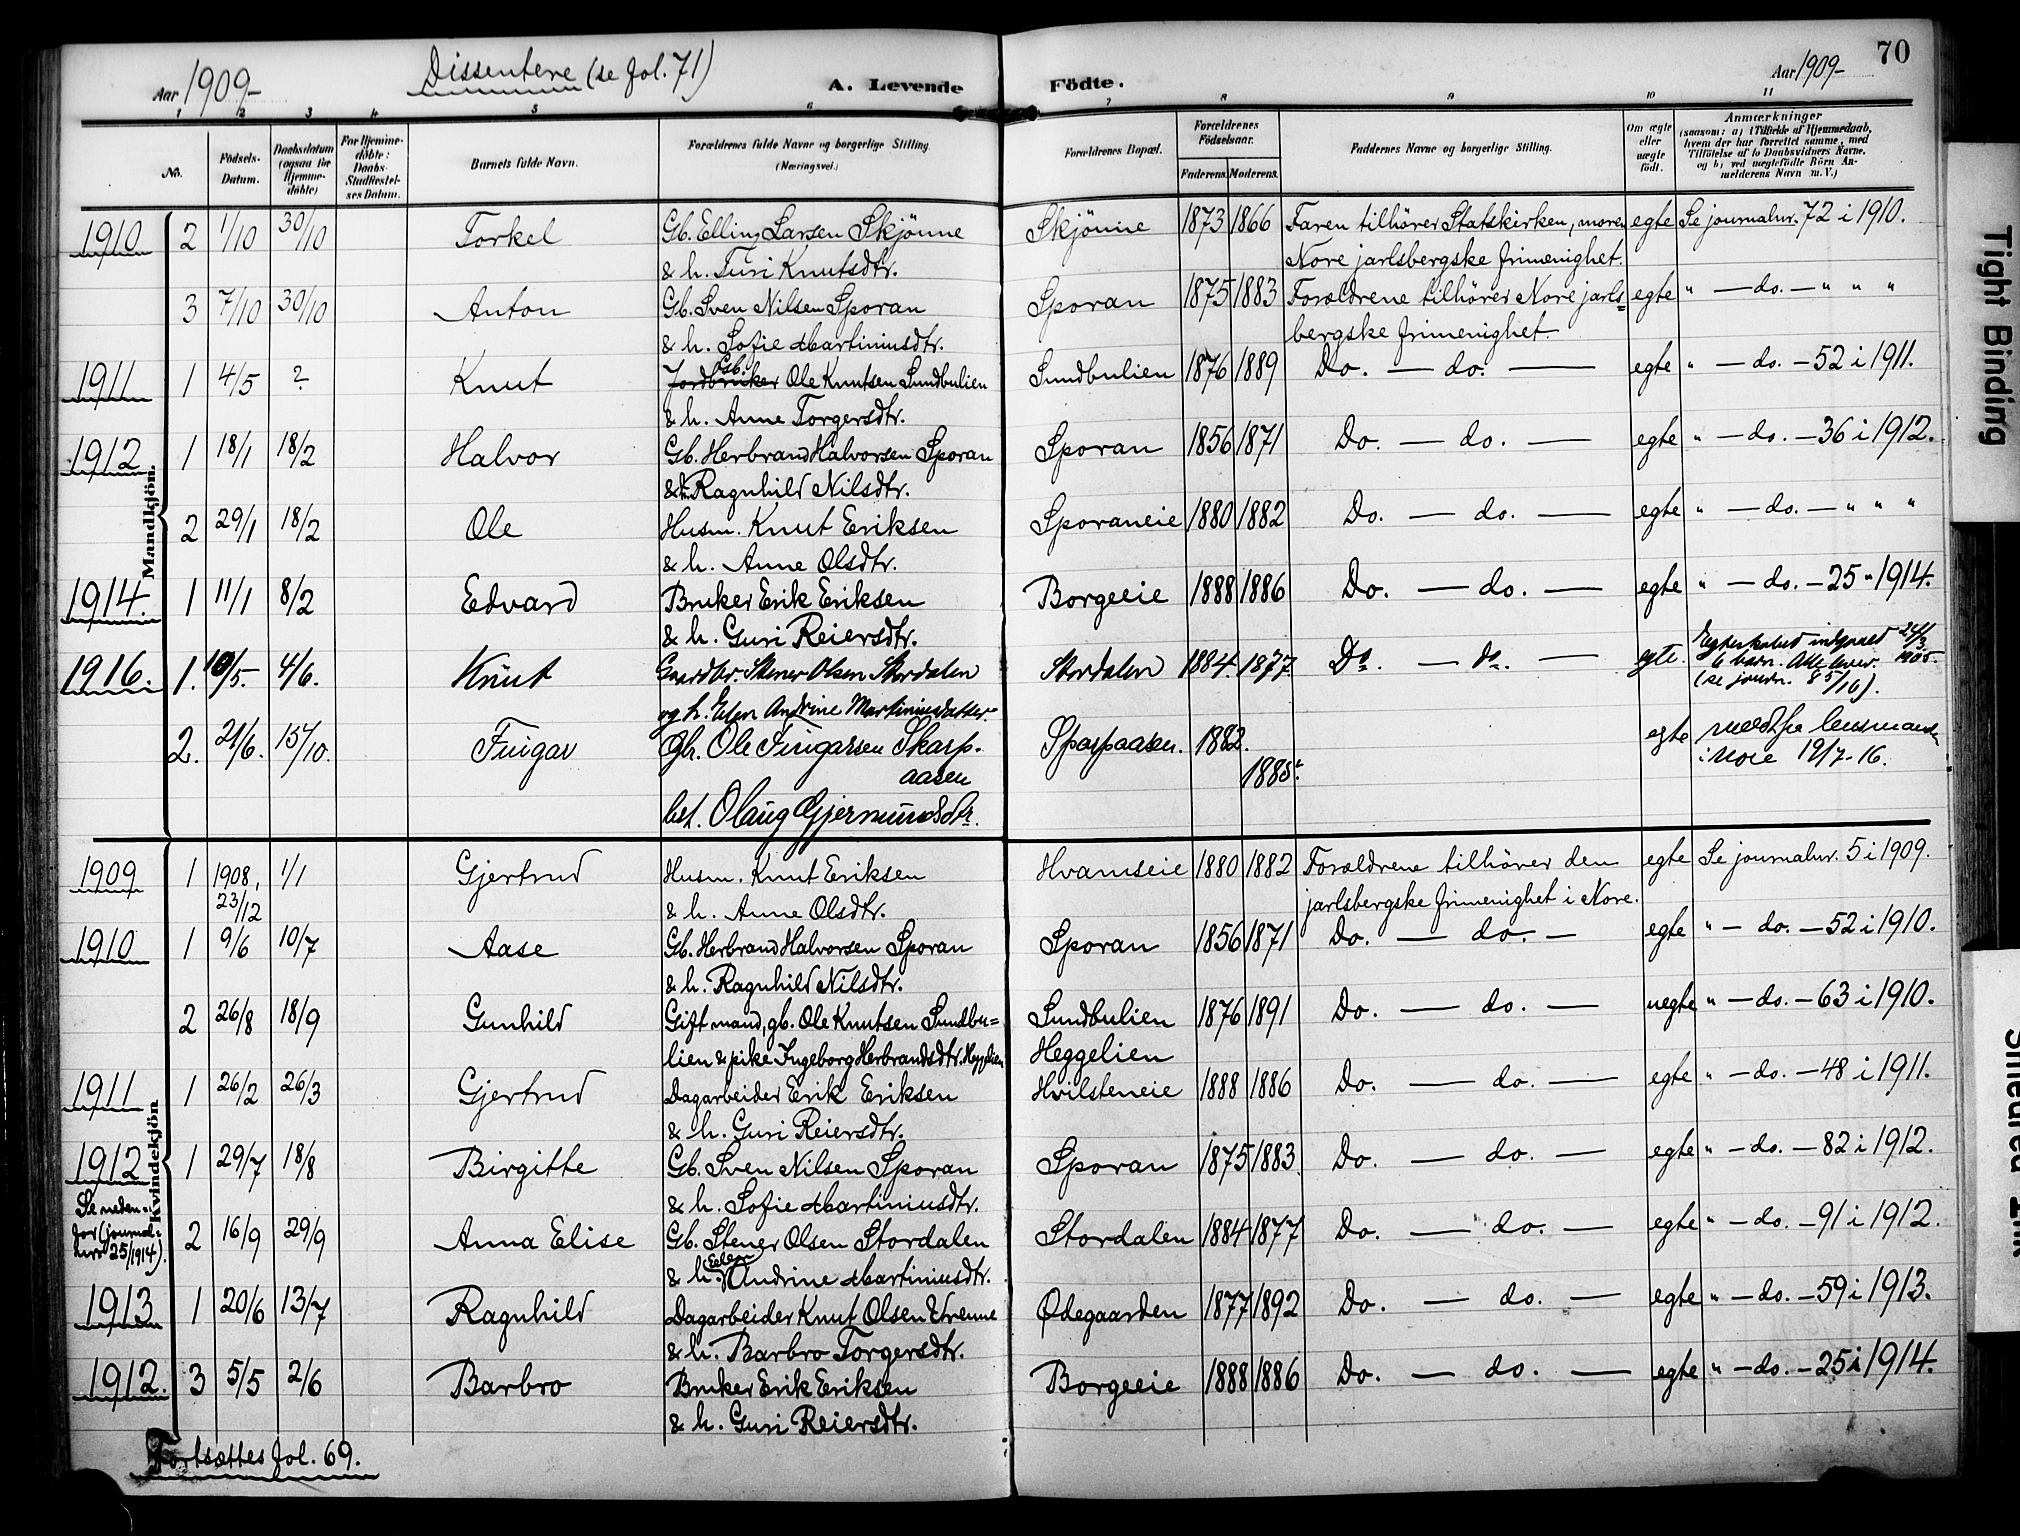 Aar 1909-
Dissentere (se fol. 71)
A. Levende Födte.
Aar 1909-
70
1 2 3 4 5 6 7 8 9 10 11
No.
Födsels-Datum.
Daabsdatum (ogsaa for Hjemme-döbte)
For Hjemme-döbte: Daabs-Stadfæstel-ses Datum.
Barnets fulde Navn.
Forældrenes fulde Navne og borgerlige Stilling. (Næringsvei.)
Forældrenes Bopæl.
Forældrenes Födselsaar. Faderens. Moderens.
Faddernes Navne og borgerlige Stilling.
Om ægte eller uægte födt.
Anmærkninger (saasom: a) i Tilfælde af Hjemmedaab, hvem der har forrettet samme, med Tilföielse af to Daabsvidners Navne, og b) ved uægtefödte Börn An-melderens Navn m. V.)
Mandkjön.
1910 2 1/10 30/10 Torkel Gb. Elling Larsen Skjønne Skjønne 1873 1866 Faren tilhører Statskirken, moren egte Se journalnr. 72 i 1910.
& h. Turi Knutsdtr. Nore jarlsbergske frimenighet.
3 7/10 30/10 Anton Gb. Sven Nilsen Sporan Sporan 1875 1883 Forældrene tilhører Nore jarls= egte " — do. — " " "
& h. Sofie Martiniusdtr. bergske frimenighet.
1911 1 4/5 ? Knut Jordbruker Gb. Ole Knutsen Sundbulien Sundbulien 1876 1889 Do. — do. — egte " — do. — 52 i 1911.
& h. Anne Torgersdtr.
1912 1 18/1 18/2 Halvor Gb. Herbrand Halvorsen Sporan Sporan 1856 1871 Do. — do. — egte " — do. — 36 i 1912.
& h. Ragnhild Nilsdtr.
2 29/1 18/2 Ole Husm. Knut Eriksen Sporaneie 1880 1882 Do. — do. — egte " — do. — " " "
& h. Anne Olsdtr.
1914. 1 11/1 8/2 Edvard Bruker Erik Eriksen Borgeeie 1888 1886 Do. — do. — egte " — do. — 25 " 1914.
& h. Guri Reiersdtr.
1916. 1. 10/5. 4/6. Knut Gaardbr. Stener Olsen Stordalen Stordalen 1884. 1877. Do. — do. — egte. Egteskabet indgaaet 24/3 1905.
6 barn. Alle lever.
(se journ. 85/16).
og h. Elen Andrine Martiniusdatter.
2. 21/6. 15/10. Fingar Gbr. Ole Fingarsen Skarp-aasen 1882. 1885. egte meldt fra lensmanden
i Nore 19/7-16.
bet. Olaug Gjermundsdtr.
Kvindekjön
1909 1 1908, 23/12 1/1 Gjertrud Husm. Knut Eriksen Hvamseie 1880 1882 Forældrene tilhører den egte Se journalnr. 5 i 1909.
& h. Anne Olsdtr. jarlsbergske frimenighet i Nore.
1910 1 9/6 10/7 Aase Gb. Herbrand Halvorsen Sporan Sporan 1856 1871 Do. — do. — egte " — do. — 52 i 1910.
& h. Ragnhild Nilsdtr.
2 26/8 18/9 Gunhild Gift mand, gb. Ole Knutsen Sundbu= Sundbulien 1876 1891 Do. — do. — uegte " — do. — 63 i 1910.
lien & pike Ingeborg Herbrandsdtr. Heggelien Heggelien
1911 1 26/2 26/3 Gjertrud Dagarbeider Erik Eriksen Hvilsteneie 1888 1886 Do. — do. — egte " — do. — 48 i 1911.
& h. Guri Reiersdtr.
1912 1 29/7 18/8 Birgitte Gb. Sven Nilsen Sporan Sporan 1875 1883. Do. — do. — egte " — do. — 82 i 1912.
& h. Sofie Martiniusdtr.
Se neden=
for (journal=
nur 25/1914).
2 16/9 29/9 Anna Elise Gb. Stener Olsen Stordalen Stordalen 1884 1877 Do. — do. — egte " — do. — 91 i 1912.
& h. Elen Andrine Martiniusdtr.
1913 1 20/6 13/7 Ragnhild Dagarbeider Knut Olsen Ødegaarden 1877 1892 Do. — do. — egte " — do. — 59 i 1913.
& h. Barbro Torgersdtr.
1912. 3 5/5 2/6 Barbro Bruker Erik Eriksen Borgeeie 1888 1886 Do. — do. — egte " — do. — 25 i 1914.
& h. Guri Reiersdtr.
Fortsættes fol. 69.
Tight Binding